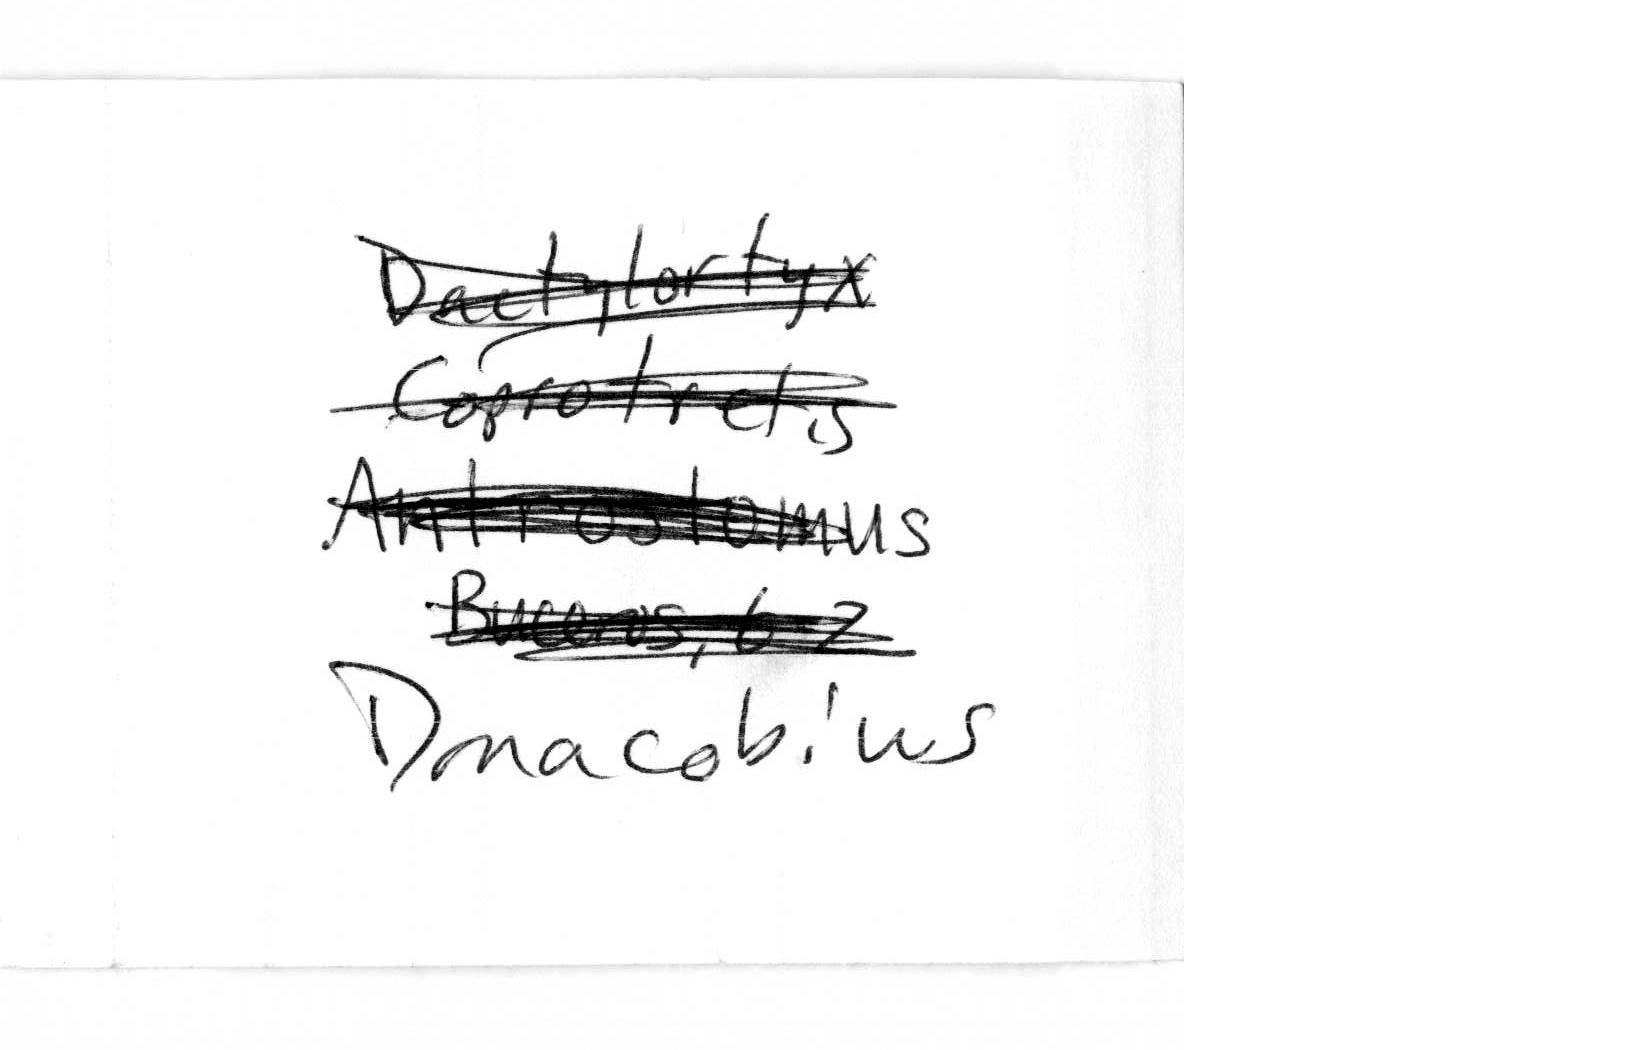 Dactylortyx
Coprotretis
Antrostomus
Buceros, 6-7
Donacobius